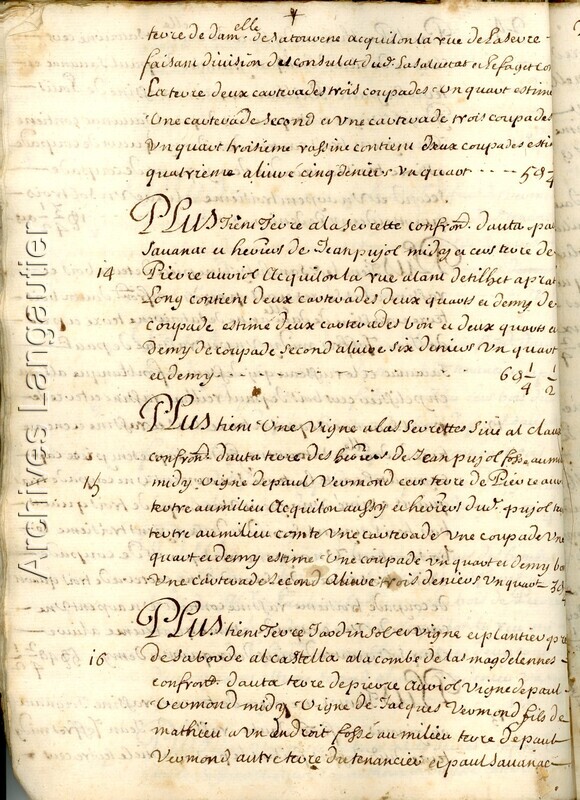 terre de dam.elle de Latourene acquilon la rüe de Lasevre
faisant division des consulat dud. Lasalvetat et Lefaget con
La terre deux carterades trois coupades un quart estimé
Une carterade second et une carterade trois coupades
un quart troisieme rassine contient deux coupades estim
quatrieme alivré cinq deniers un quart
PLus tient Terre a la sevrette confron. d'auta paul
Savanac et heritiers de Jean pujol midy et cers terre de
14 Pierre auriol Acquilon la rüe alant de tilhet a prat
Long contient deux carterades deux quarts et demy de
coupade estimé deux carterades bon et deux quarts et
demy de coupade second alivré six deniers un quart
et demy 6 d 1/4 1/2
PLus tient Une vigne a las sevrettes sive al claux
confron. d'auta terre des heritiers de Jean pujol fossé au milieu
15 midy vigne de paul Vermond cers terre de Pierre
tertre au milieu Acquilon aussy et heritiers dud. pujol
tertre au milieu comte une carterade une coupade un
quart et demy estimé une coupade un quart et demy bon
une carterade second Alivré trois deniers un quart
PLus tient Terre Jardin sol et vigne et plantier pres
16 de sa borde al castella a la combe de las magdelennes
confron. d'auta terre de pierre Auriol vigne de paul
Vermond midy vigne de Jacques Vermond fils de
mathieu a un endroit fossé au milieu terre de paul
Vermond autre terre du tenancier et paul Savanac
Archives Langautier